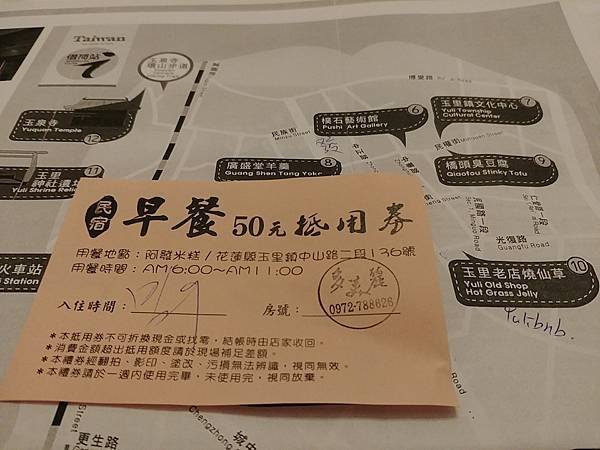 Taiwan
借問站
玉泉寺
璞山步道
博愛路
玉泉寺
Yuquan Temple
12
民族街
Minzu Street
中正路
中華路
璞石藝術館
Pushi Art Gallery
6
玉里鎮文化中心
Yuli Township
Cultural Center
7
民權街
廣盛堂羊羹
Guang Shen Tang Yoka
8
橋頭臭豆腐
Qiaotou Stinky Tofu
9
玉里
神社遺址
Yuli Shrine Relic
11
光復路
Guangfu Road
玉里老店燒仙草
Yuli Old Shop
Hot Grass Jelly
10
Yulibnb.
火車站
Station
民宿
早餐 50元抵用券
用餐地點:阿蹤米糕/花蓮縣玉里鎮中山路二段136號
用餐時間:AM6:00~AM11:00
入住時間:
房號:
0972-788626
*本抵用券不可折換現金或找零,結帳時由店家收回。
*消費金額超出抵用額度請於現場補足差額。
*本禮券經翻拍、影印、塗改、污損無法辨識,視同無效。
*本禮券請於一週內使用完畢,未使用完,視同放棄。
Road
更生路
城中